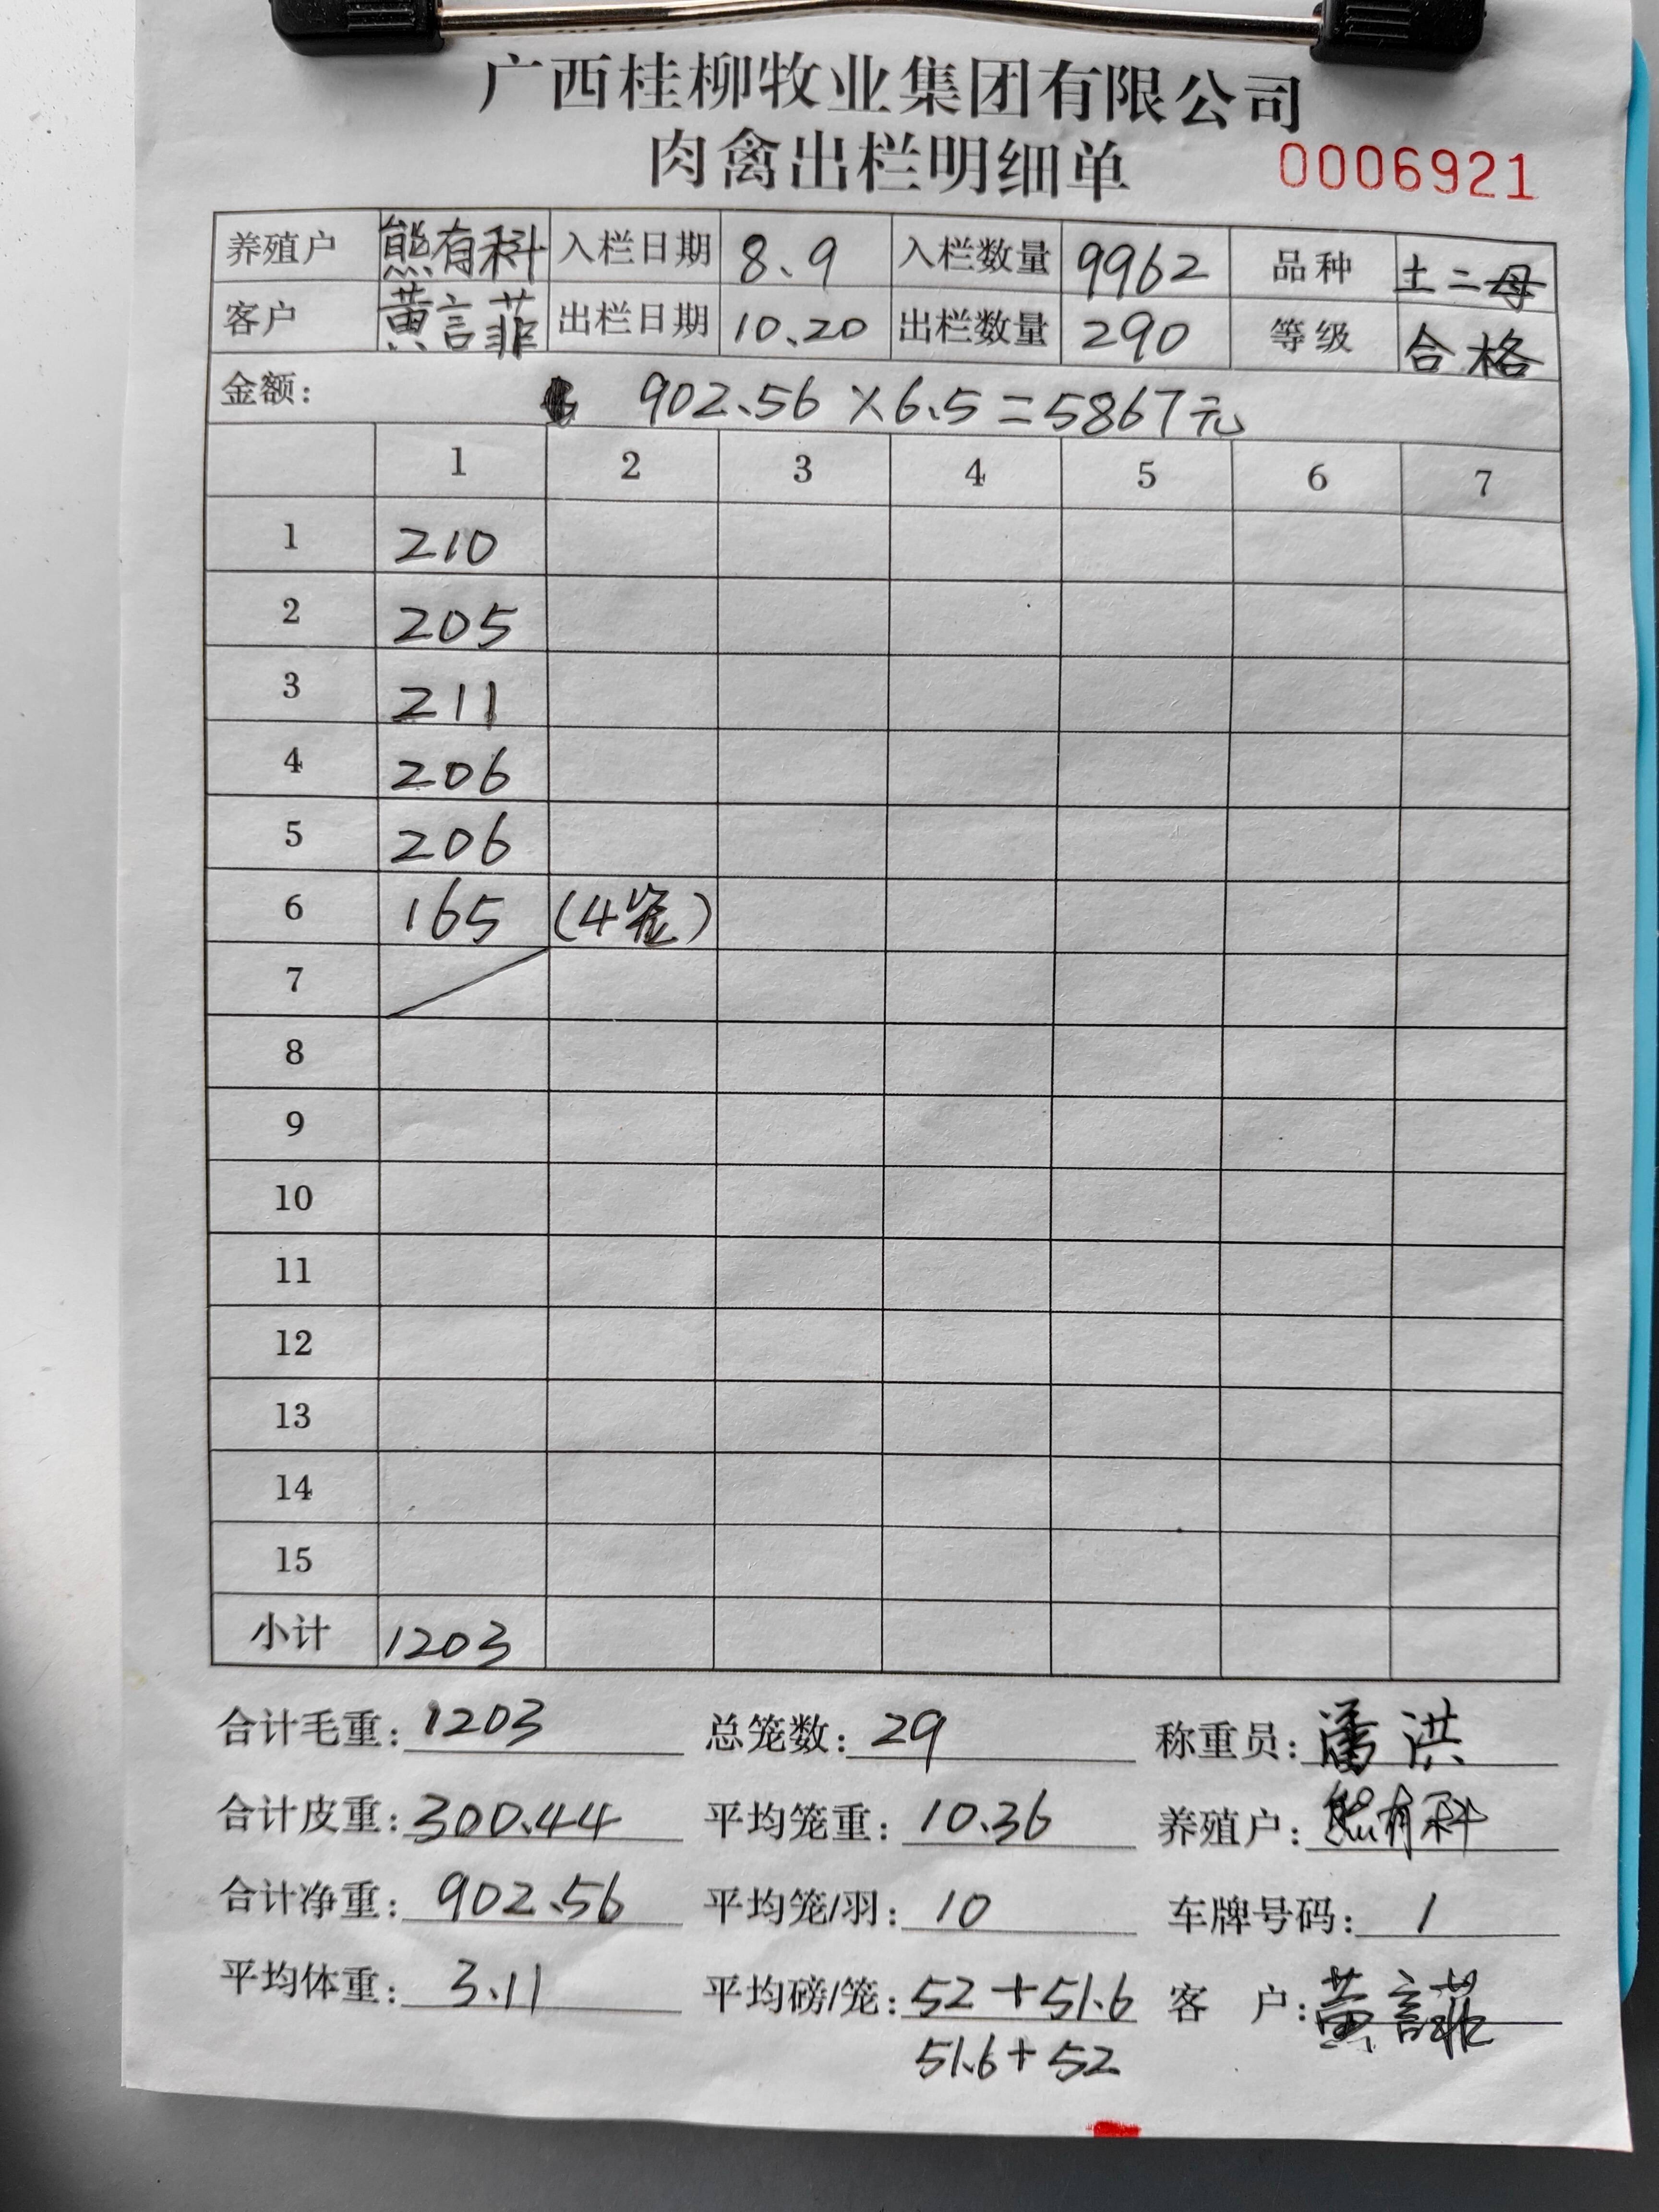 广西桂柳牧业集团有限公司
肉禽出栏明细单 0006921
养殖户 熊有科 入栏日期 8.9 入栏数量 9962 品种 土二母
客户 黄言菲 出栏日期 10.20 出栏数量 290 等级 合格
金额: 902.56×6.5=5867元
1 2 3 4 5 6 7
1 210
2 205
3 211
4 206
5 206
6 165 (4笼)
7
8
9
10
11
12
13
14
15
小计 1203
合计毛重: 1203 总笼数: 29 称重员: 潘洪
合计皮重: 300.44 平均笼重: 10.36 养殖户: 熊有科
合计净重: 902.56 平均笼/羽: 10 车牌号码: 1
平均体重: 3.11 平均磅/笼: 52+51.6 客 户: 黄言菲
51.6+52